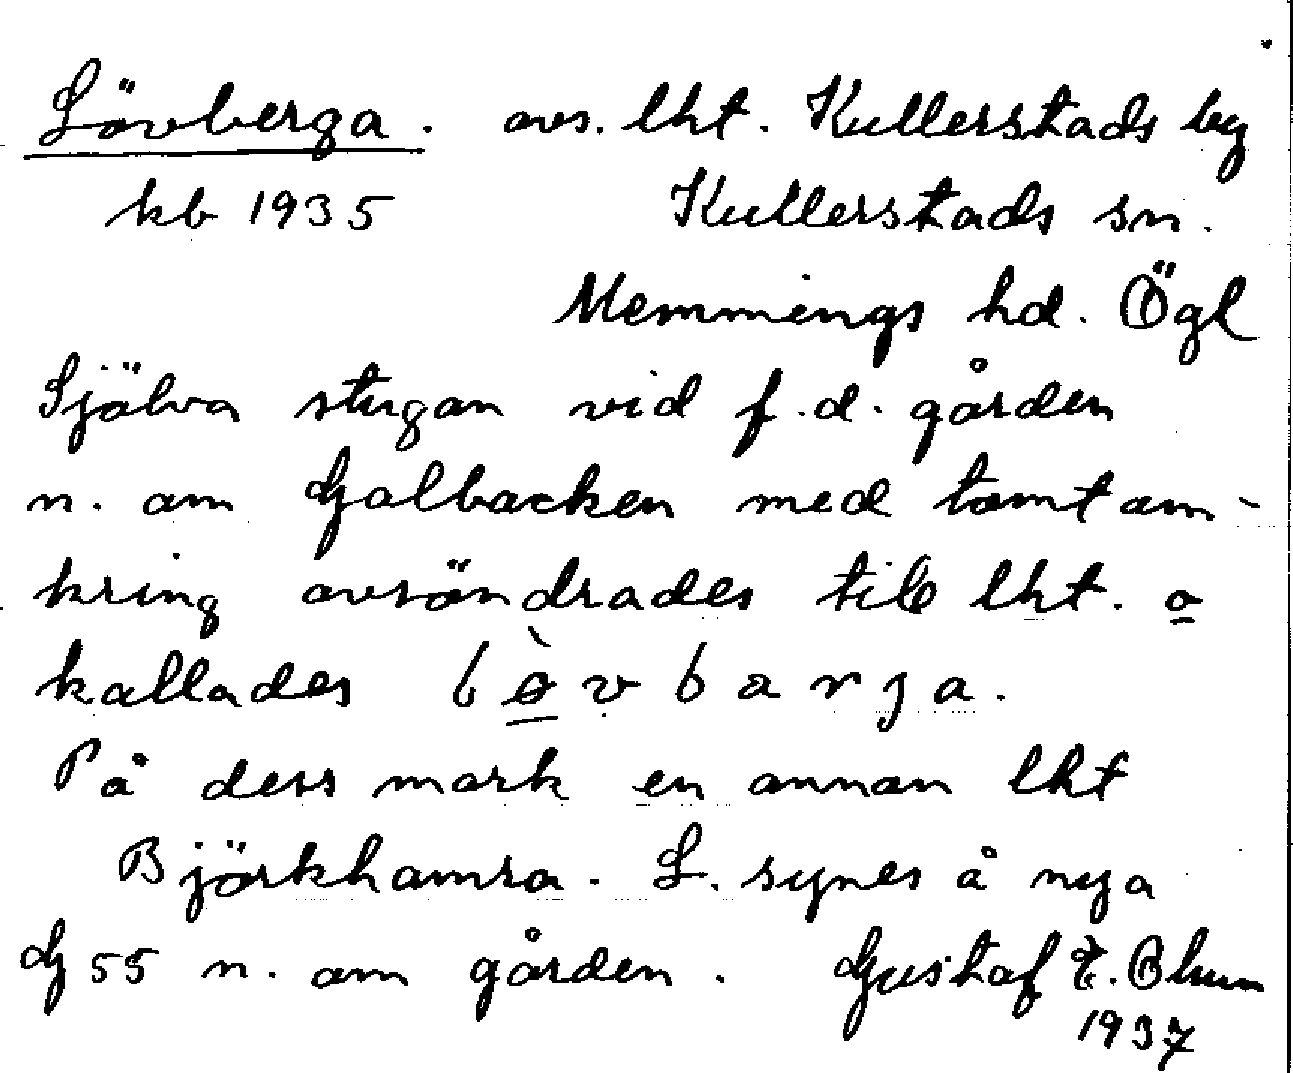 Lövberga. avs. lht. Kullerstads by
kb 1935 Kullerstads sn.
Memmings hd. Ögl
Själva stugan vid f.d. gården
n. om Galbacken med tomt om-
kring avsöndrades till lht. o
kallades lòvbarga.
På dess mark en annan lht
Björkhamra. L. synes å nya
G 55 n. om gården. Gustaf E. Blum
1937